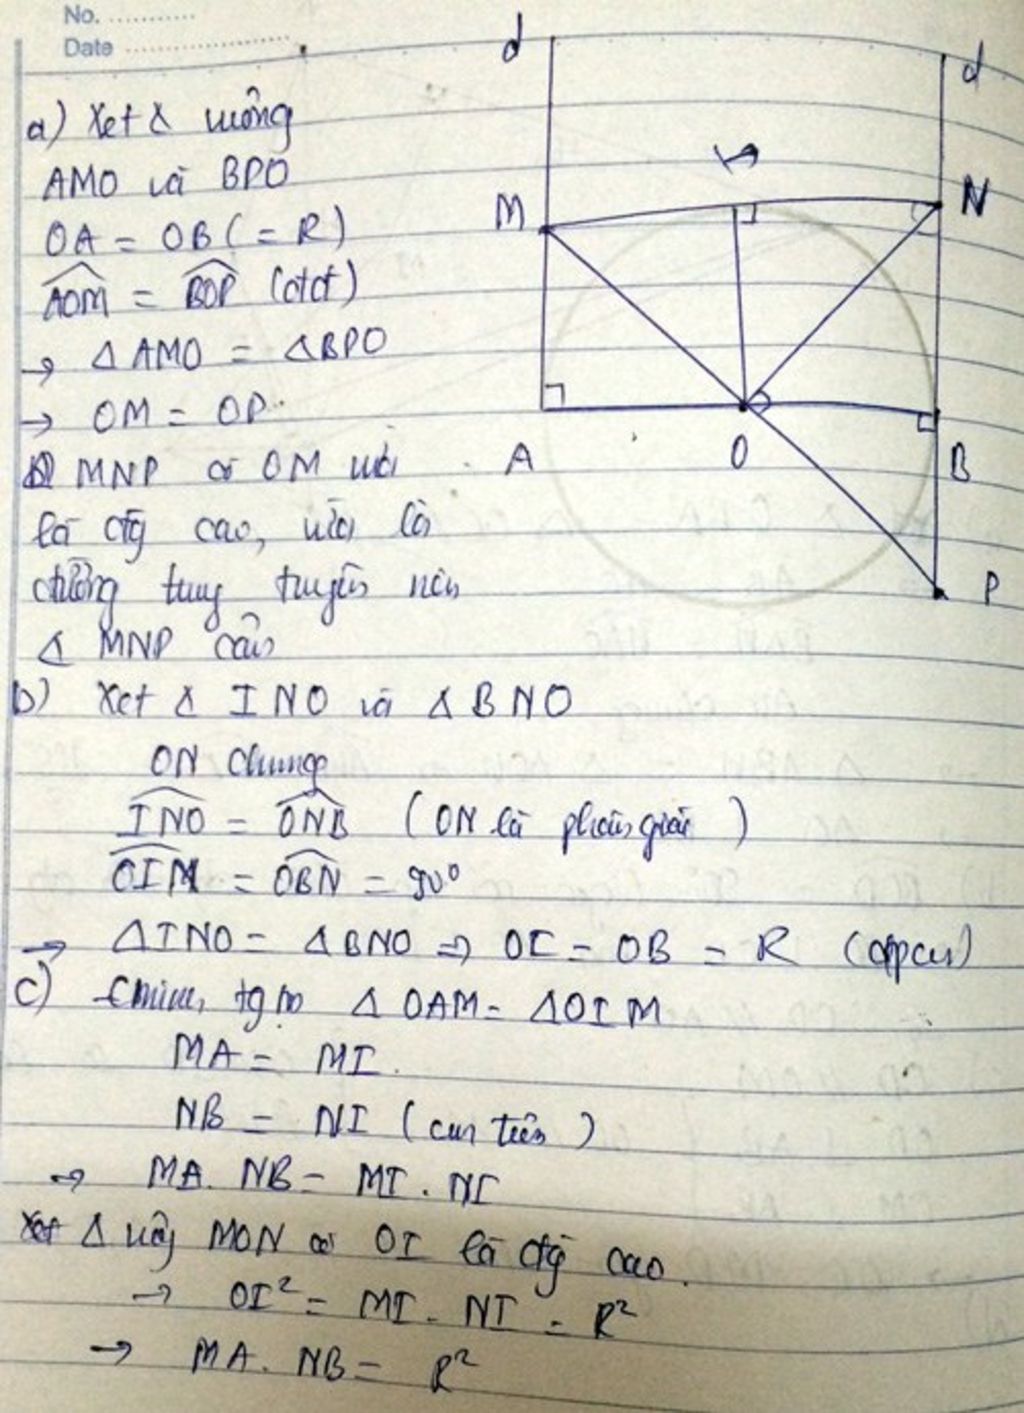 No. ...........
Date ........................
d
d
a) Xét Δ vuông
AMO và BPO
OA = OB (= R)
AOM = BOP (đđ)
→ Δ AMO = Δ BPO
→ OM = OP
Δ MNP có
là đg cao, vừa là
đường tuyến nên
Δ MNP cân
M
I
N
A
O
B
P
b) Xét Δ INO và Δ BNO
ON chung
INO = ONB (ON là phân giác)
OIM = OBN = 90°
→ ΔINO = ΔBNO ⇒ OI = OB = R (đpcm)
c) Δ OAM = ΔOIM
MA = MI.
NB = NI (cm trên)
→ MA. NB = MI. NI
Xét Δ MON có OI là đg cao.
→ OI² = MI. NI = R²
→ MA. NB = R²